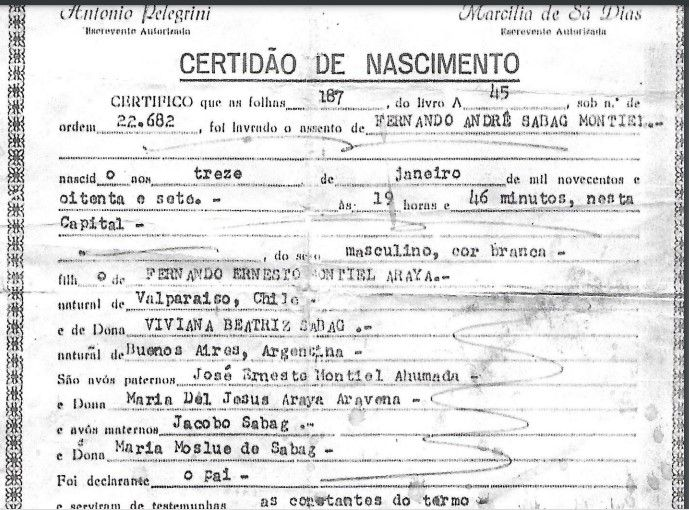 Antonio Pelegrini Marcília de Sá Dias
Escrevente Autorizada Escrevente Autorizada
CERTIDÃO DE NASCIMENTO
CERTIFICO que as folhas 187, do livro A 45, sob n.º de
ordem 22.682, foi lavrado o assento de FERNANDO ANDRÉ SABAG MONTIEL.-
nascid o aos treze de janeiro de mil novecentos e
oitenta e sete. - às 19 horas e 46 minutos, nesta
Capital -
, do sexo masculino, cor branca -
filh o de FERNANDO ERNESTO MONTIEL ARAYA.-
natural de Valparaiso, Chile -
e de Dona VIVIANA BEATRIZ SABAG .-
natural de Buenos Aires, Argentina -
São avós paternos José Ernesto Montiel Ahumada -
e Dona Maria Del Jesus Araya Aravena -
e avós maternos Jacobo Sabag .-
e Dona Maria Moslue de Sabag -
Foi declarante o pai -
e serviram de testemunhas as constantes do termo -